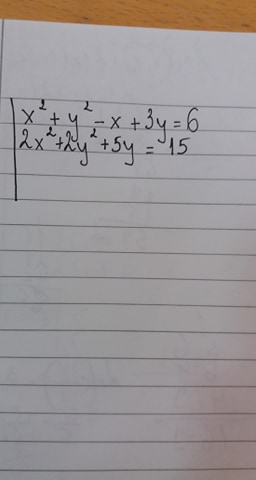 x² + y² - x + 3y = 6
2x² + 2y² + 5y = 15